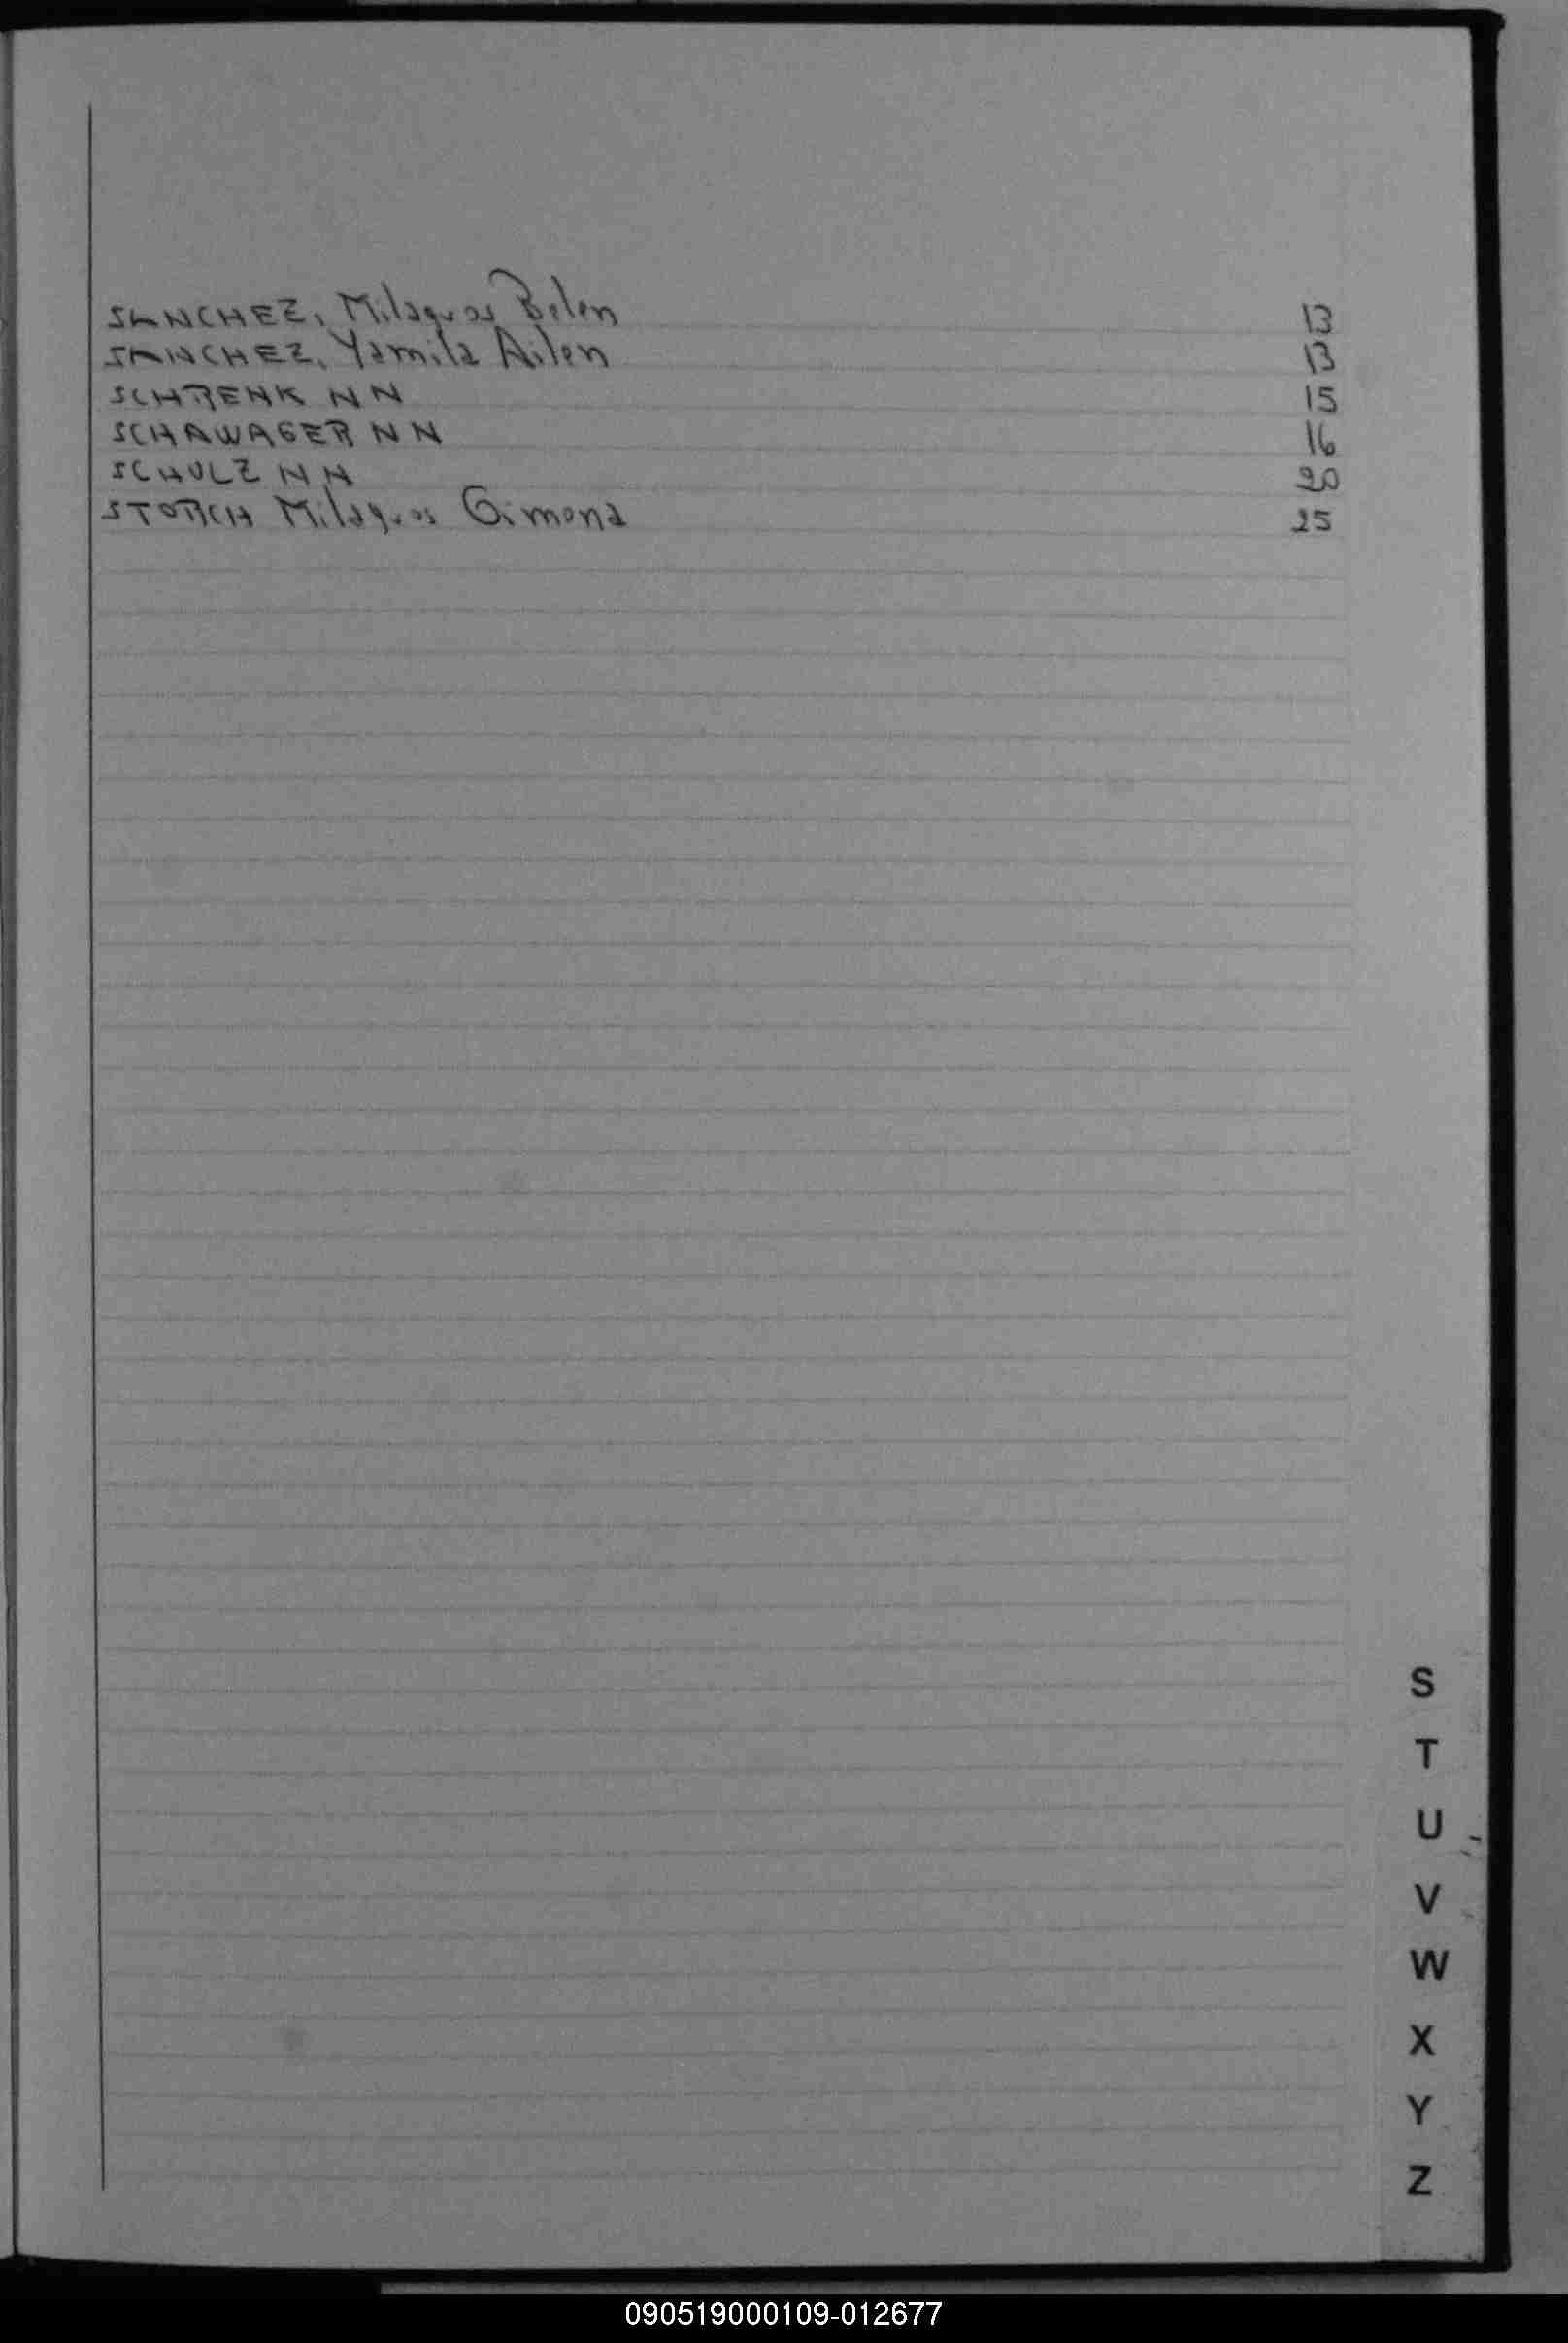 SANCHEZ, Milagros Belen 13
SANCHEZ, Yamila Ailen 13
SCHRENK NN 15
SCHAWAGER NN 16
SCHULZ NN 20
STORCH Milagros Gimena 25
S
T
U
V
W
X
Y
Z
090519000109-012677